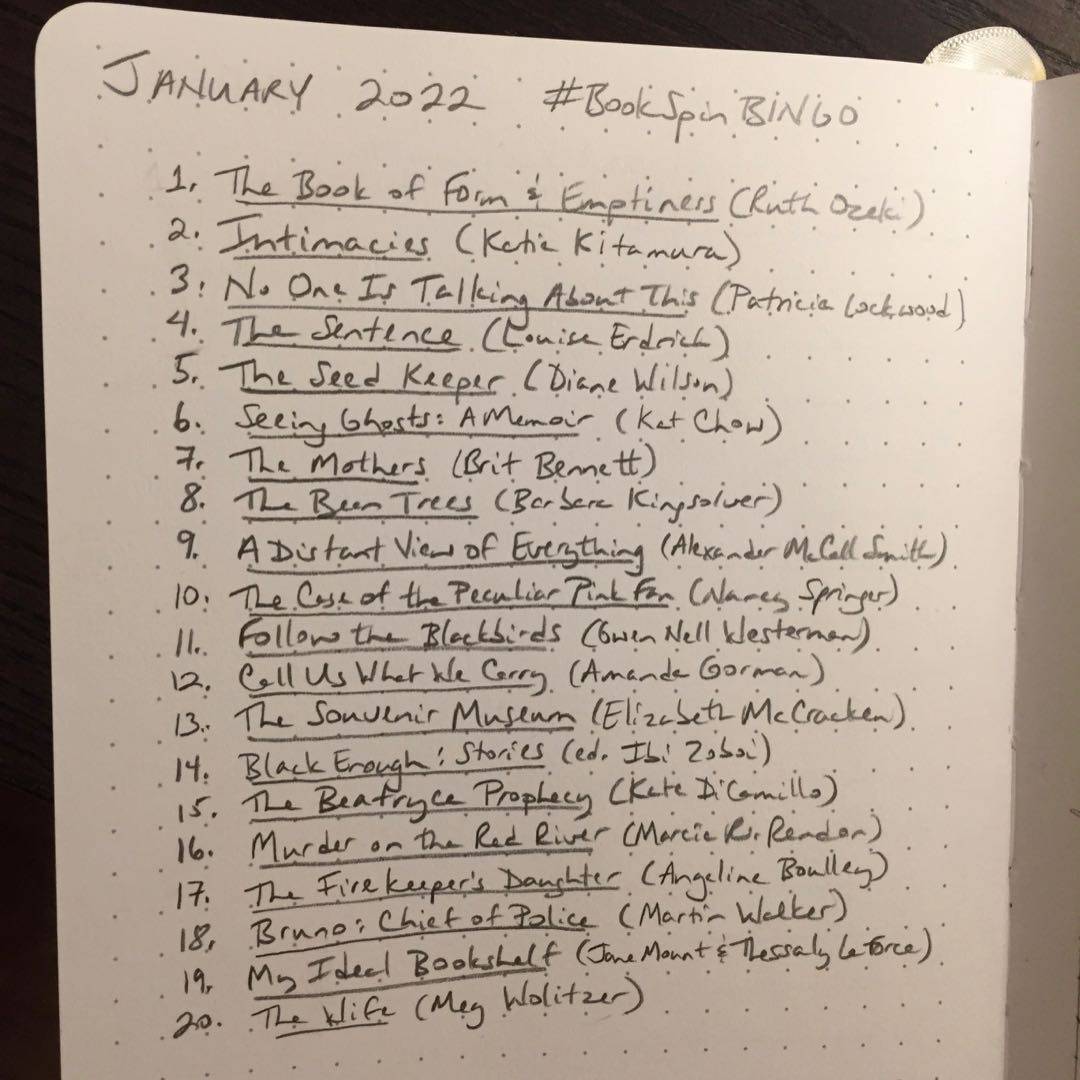 JANUARY 2022 #BookSpinBINGO
1. The Book of Form & Emptiness (Ruth Ozeki)
2. Intimacies (Katie Kitamura)
3. No One Is Talking About This (Patricia Lockwood)
4. The Sentence (Louise Erdrich)
5. The Seed Keeper (Diane Wilson)
6. Seeing Ghosts: A Memoir (Kat Chow)
7. The Mothers (Brit Bennett)
8. The Bean Trees (Barbara Kingsolver)
9. A Distant View of Everything (Alexander McCall Smith)
10. The Case of the Peculiar Pink Fan (Nancy Springer)
11. Follow the Blackbirds (Gwen Nell Westerman)
12. Call Us What We Carry (Amanda Gorman)
13. The Souvenir Museum (Elizabeth McCracken)
14. Black Enough: Stories (ed. Ibi Zoboi)
15. The Beatryce Prophecy (Kate DiCamillo)
16. Murder on the Red River (Marcie R. Rendon)
17. The Firekeeper's Daughter (Angeline Boulley)
18. Bruno: Chief of Police (Martin Walker)
19. My Ideal Bookshelf (Jane Mount & Thessaly La Force)
20. The Wife (Meg Wolitzer)